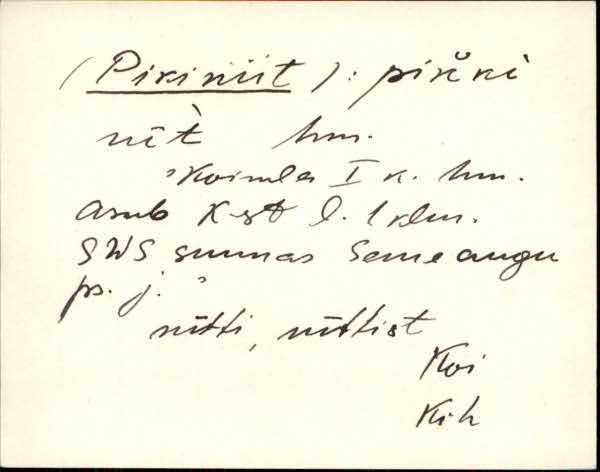 (Pikiniit): pikki
nīt̀ hm.
"Koimla I k. hm.
asub K-st l. 1 klm.
SWS suunas Semeaugu
ps. j."
nītti, nīttist
Koi
Kih